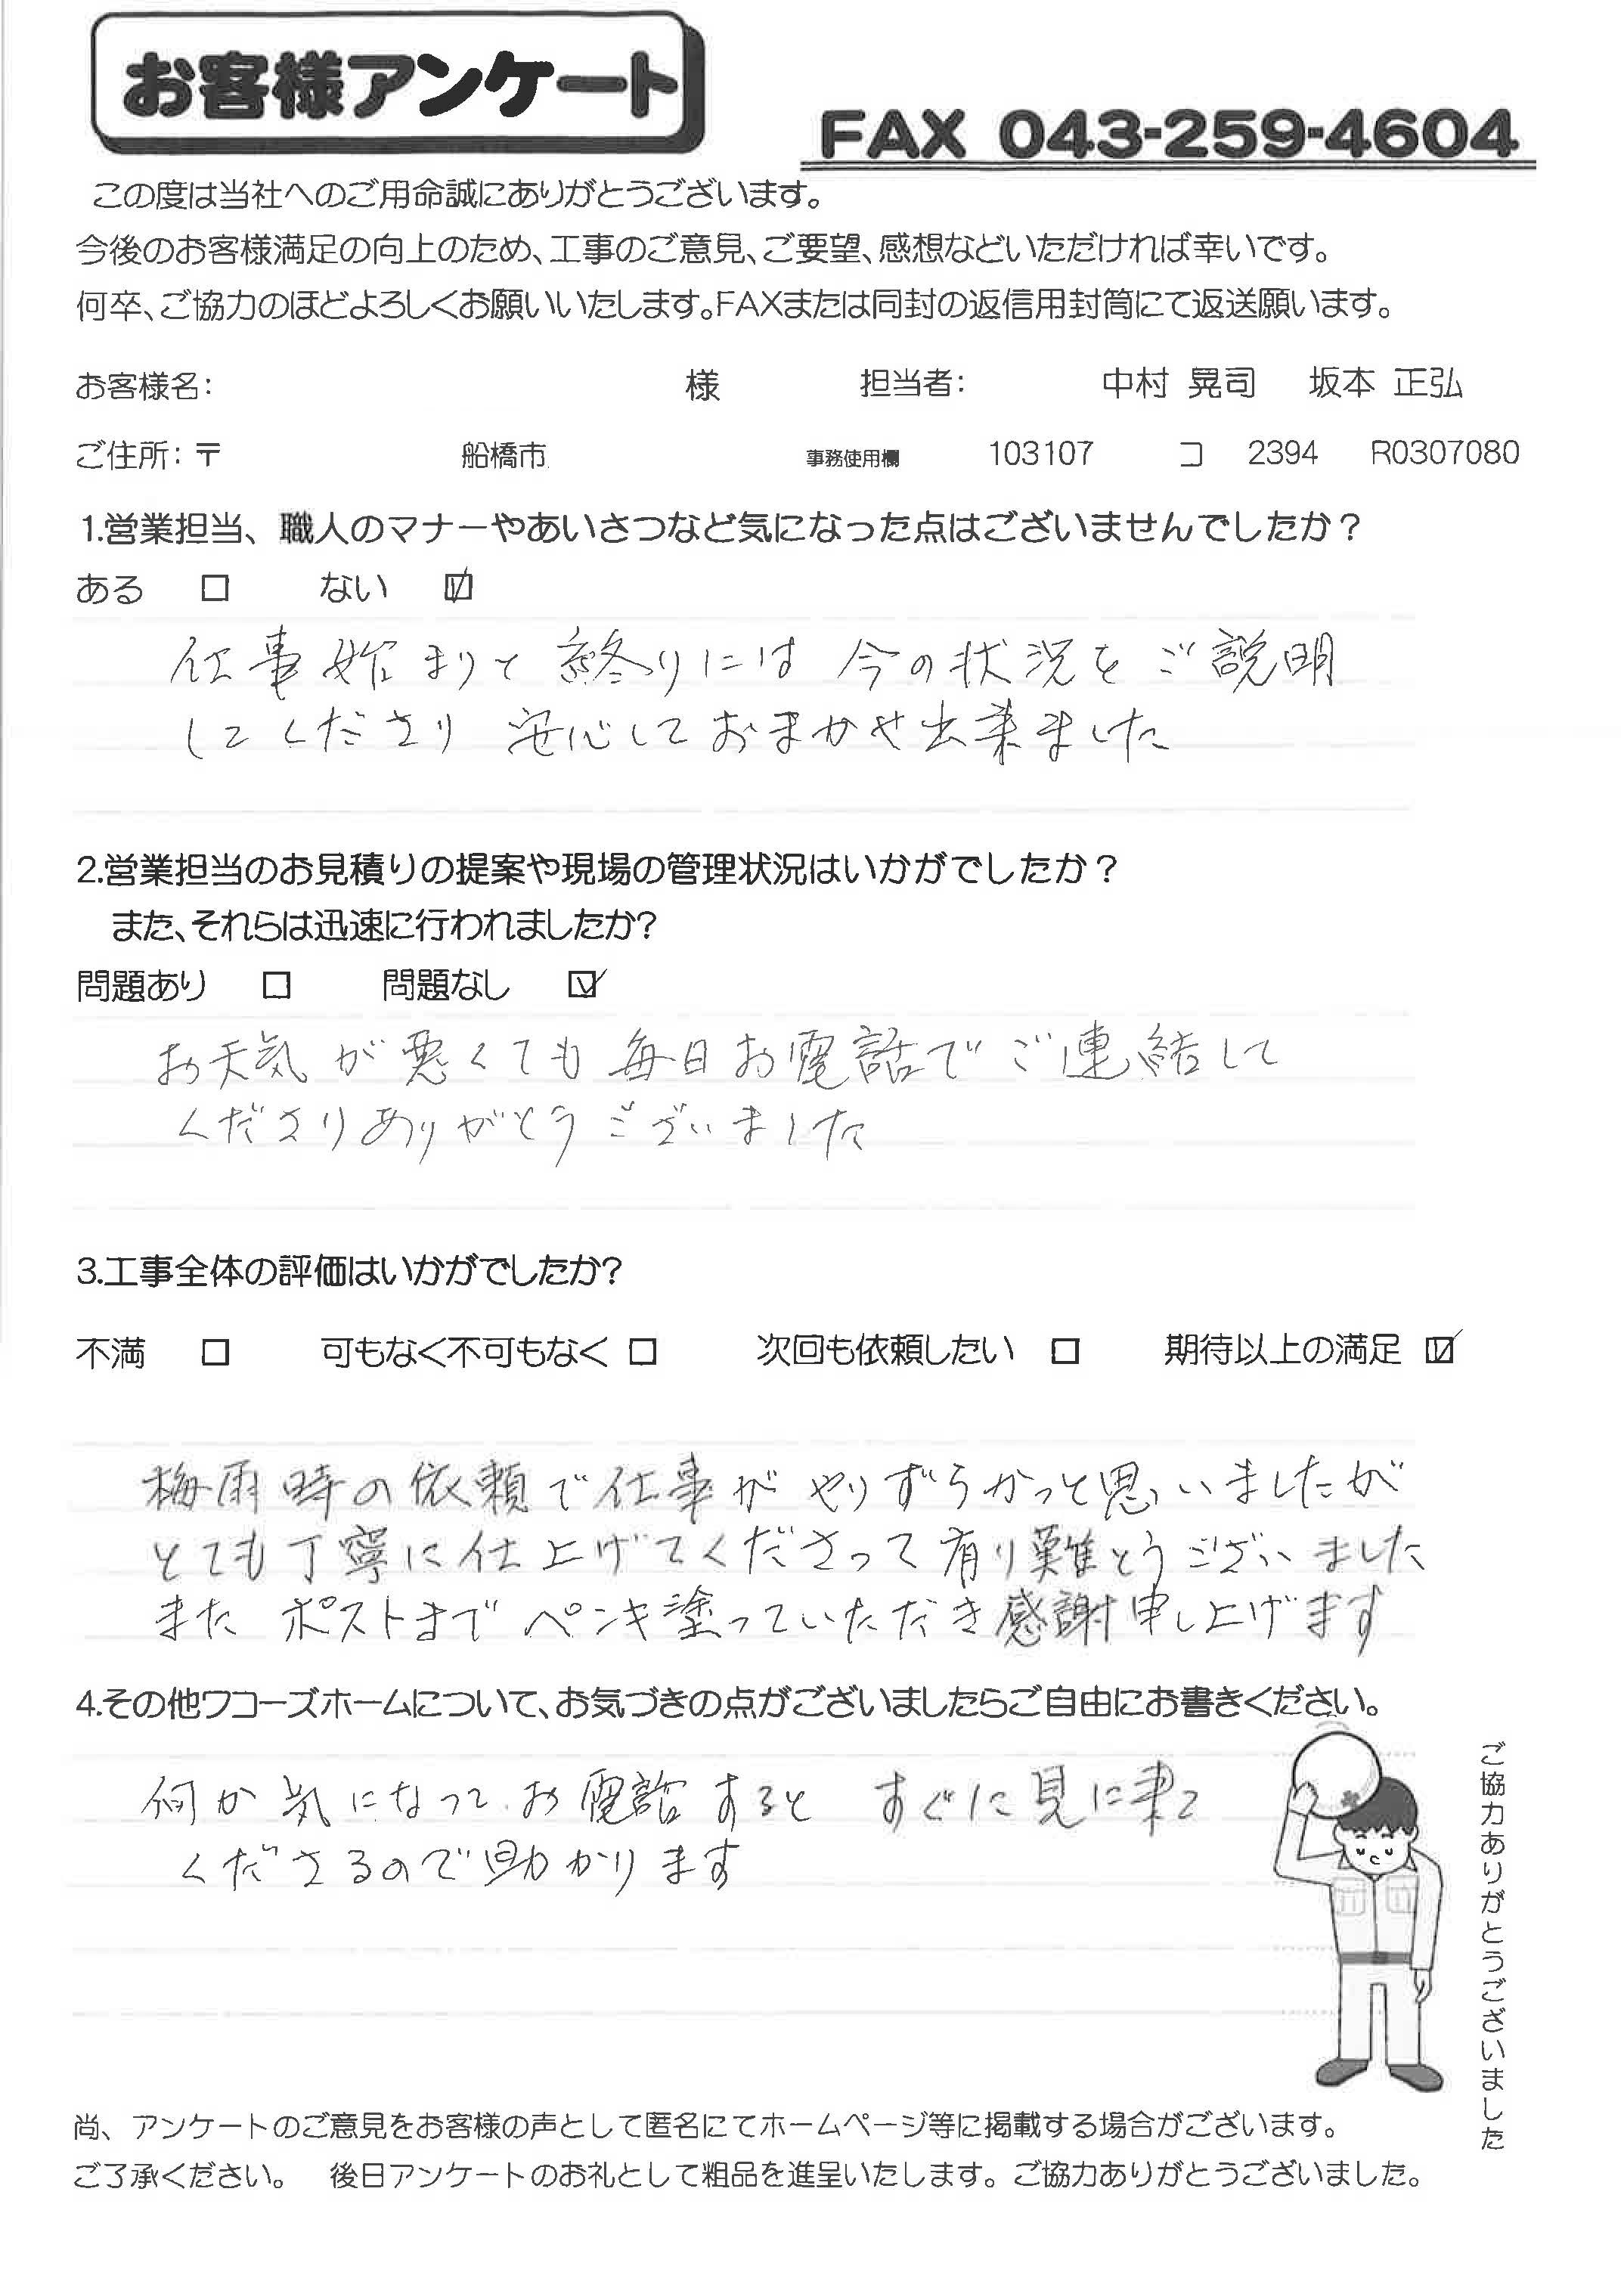 お客様アンケート
FAX 043-259-4604
この度は当社へのご用命誠にありがとうございます。
今後のお客様満足の向上のため、工事のご意見、ご要望、感想などいただければ幸いです。
何卒、ご協力のほどよろしくお願いいたします。FAXまたは同封の返信用封筒にて返送願います。
お客様名： 様 担当者： 中村 晃司 坂本 正弘
ご住所：〒 船橋市 事務使用欄 103107 コ 2394 R0307080
1.営業担当、職人のマナーやあいさつなど気になった点はございませんでしたか？
ある □ ない ☑
仕事始まりと終りには今の状況をご説明
してくださり 安心しておまかせ出来ました
2.営業担当のお見積りの提案や現場の管理状況はいかがでしたか？
また、それらは迅速に行われましたか?
問題あり □ 問題なし ☑
お天気が悪くても毎日お電話でご連結して
くださりありがとうございました
3.工事全体の評価はいかがでしたか?
不満 □ 可もなく不可もなく □ 次回も依頼したい □ 期待以上の満足 ☑
梅雨時の依頼で仕事がやりずらかっと思いましたが
とても丁寧に仕上げてくださって有り難とうございました
また ポストまで ペンキ塗っていただき感謝申し上げます
4.その他ワコーズホームについて、お気づきの点がございましたらご自由にお書きください。
何か気になって お電話すると すぐに見に来て
くださるので助かります
ご協力ありがとうございました
尚、アンケートのご意見をお客様の声として匿名にてホームページ等に掲載する場合がございます。
ご了承ください。 後日アンケートのお礼として粗品を進呈いたします。ご協力ありがとうございました。